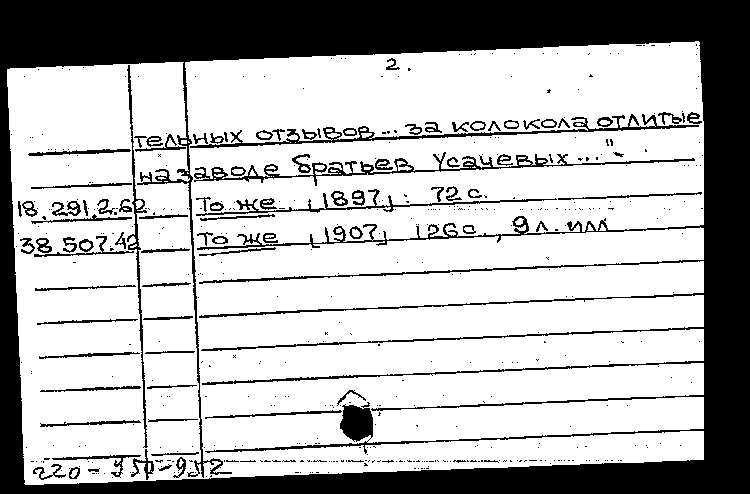 2.
тельных отзывов... за колокола отлитые
на заводе братьев Усачевых..."
18.291.2.62. То же. [1897]. 72 с.
38.507.42 То же [1907] 126 с., 9 л. илл
220-950-952